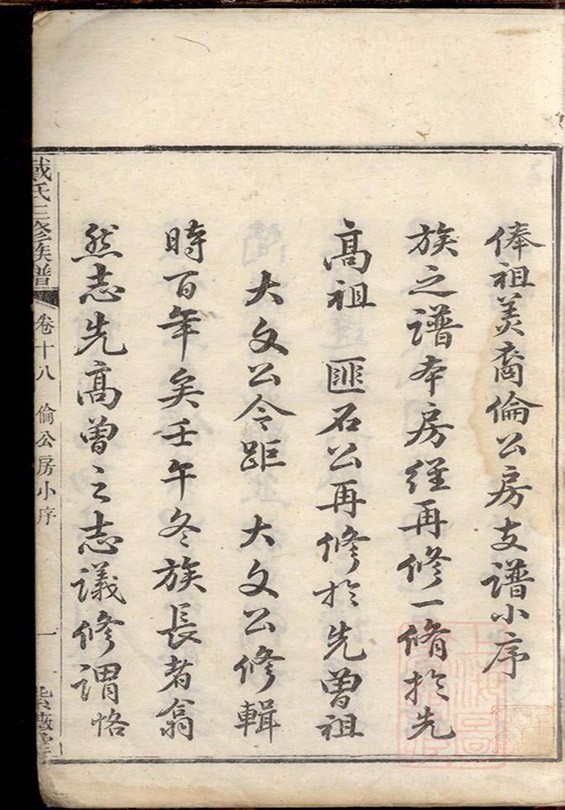 俸祖羙裔倫公房支譜小序
族之譜本房経再修一脩於先
高祖 匪石公再修於先曽祖
大文公今距 大文公修輯
時百年矣壬午冬族長者翕
然志先高曽之志議修谓恪
戴氏三修族譜 卷十八 倫公房小序 一